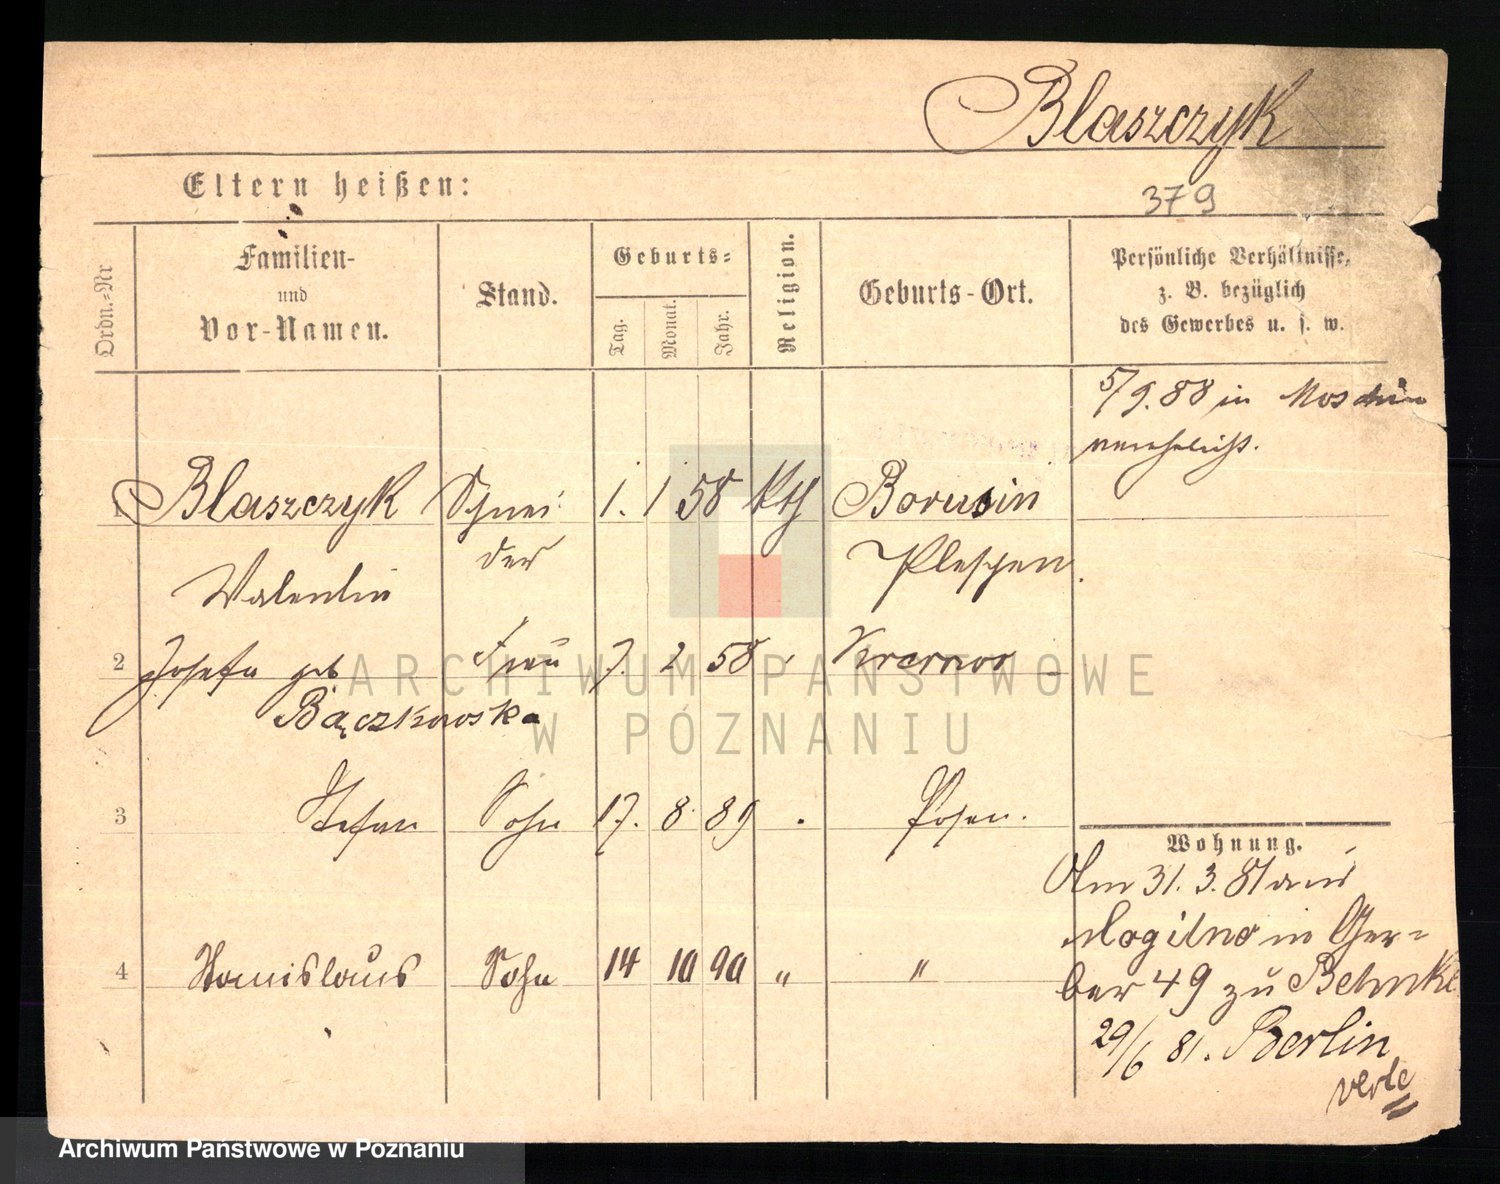 Blaszczyk
Eltern heißen:
379
Ordn.=Nr
Familien-
und
Vor-Namen.
Stand.
Geburts=
Tag.
Monat.
Jahr.
Religion.
Geburts-Ort.
Persönliche Verhältnisse,
z. B. bezüglich
des Gewerbes u. s. w.
5/9. 88 in Moschin
verehelicht.
1 Blaszczyk Schnei- 1. 1 58 kth Borusin
Valentin der Pleschen.
2 Josefa geb Frau 7. 2 58
Bączkowska
3 Stefan Sohn 17. 8 89 Posen.
Wohnung.
Am 31. 3. 81 aus
Mogilno in Ger=
4 Stanislaus Sohn 14 10 90 " "
ber 49 zu Behnke
29/6 81. Berlin
ARCHIWUM PAŃSTWOWE
W POZNANIU
Archiwum Państwowe w Poznaniu